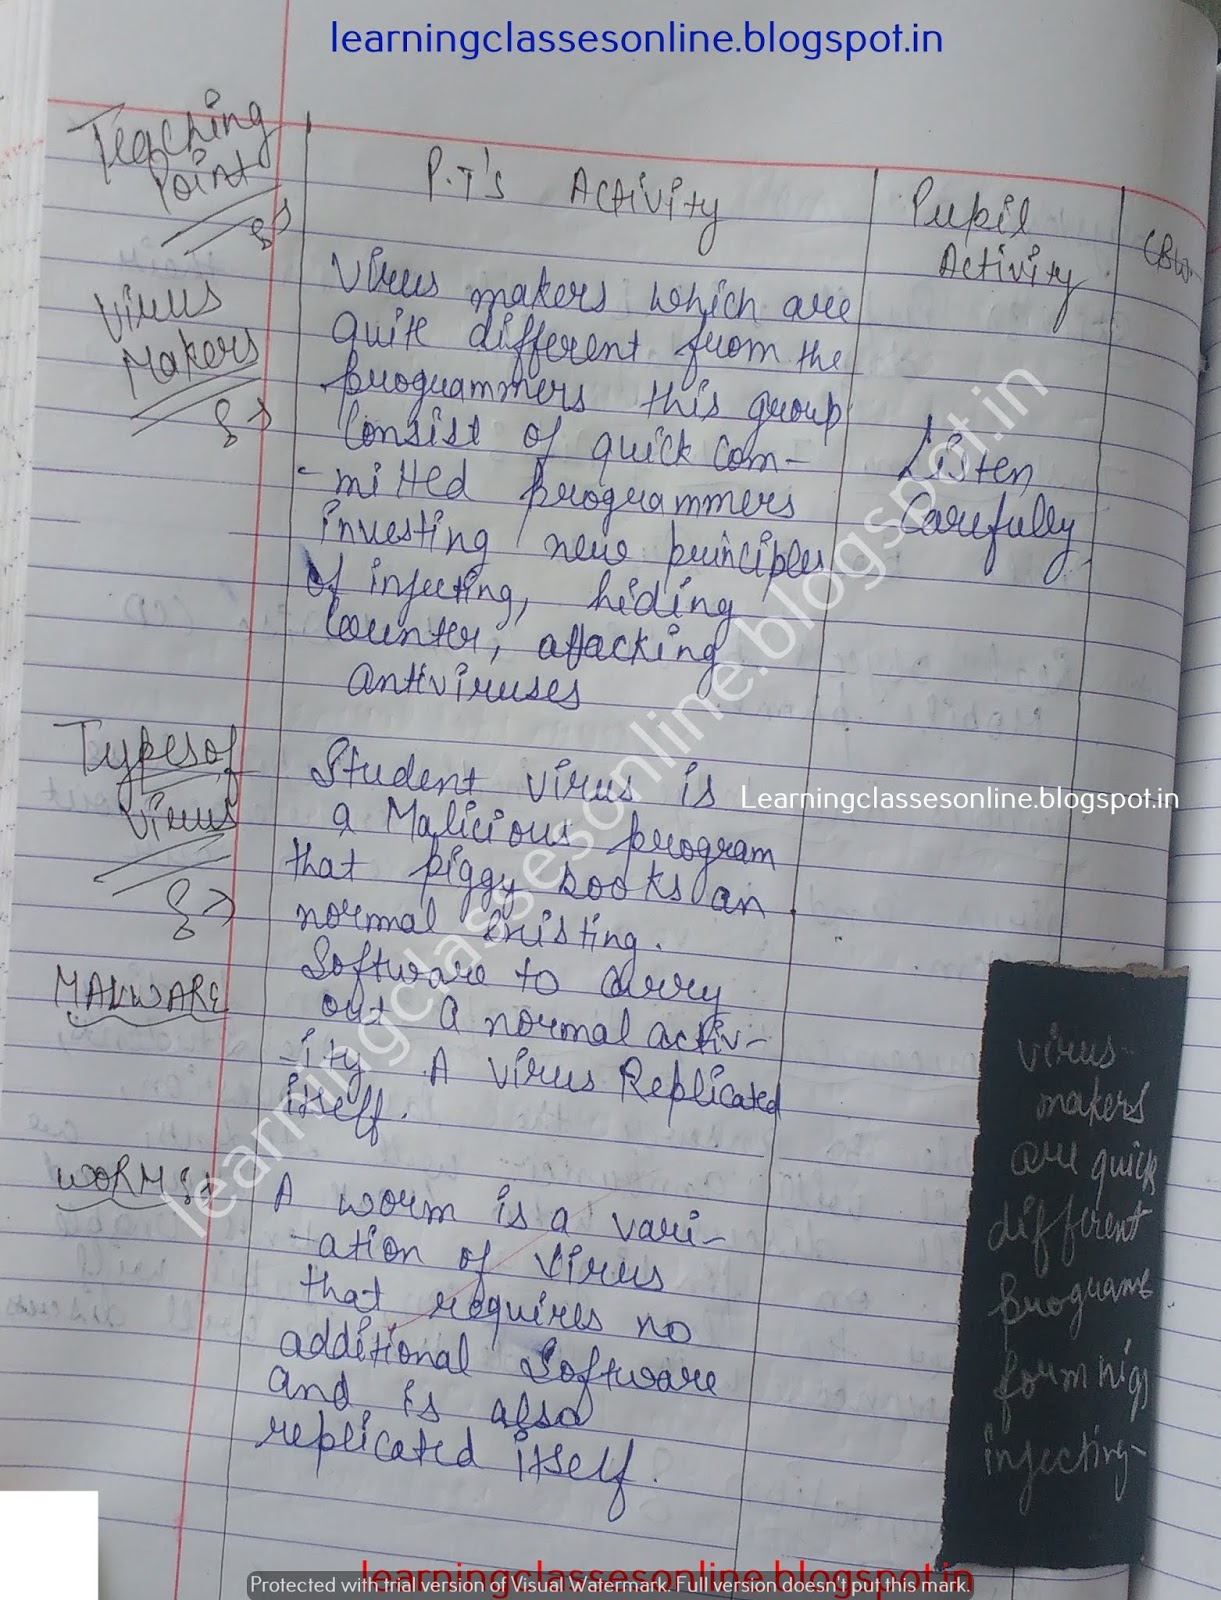 learningclassesonline.blogspot.in
Teaching
Point
P.T's Activity
Pupil
Activity
CBW
Virus
Makers
Virus makers which are
quite different from the
programmers this group
Consist of quick com-
-mitted programmers
investing new principles
of injecting, hiding
Counter, attacking
antiviruses
Listen
Carefully
Types of
Virus
Student virus is
a Malicious program
that piggy books an
normal existing.
Software to carry
out a normal activ-
-ity A virus Replicated
itself.
MALWARE
WORMS
A worm is a vari-
-ation of virus
that requires no
additional Software
and is also
replicated itself.
Virus-
makers
are quick
different
programs
injecting-
learningclassesonline.blogspot.in
Learningclassesonline.blogspot.in
learningclassesonline.blogspot.in
Protected with trial version of Visual Watermark. Full version doesn't put this mark.